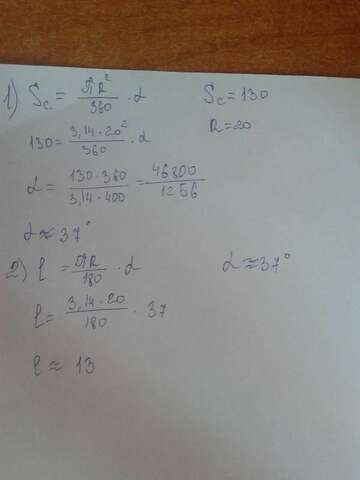 1) Sc = πR²/360 · α
Sc = 130
R = 20
130 = 3,14 · 20²/360 · α
α = 130 · 360/3,14 · 400 = 46800/1256
α ≈ 37°
2) l = πR/180 · α
α ≈ 37°
l = 3,14 · 20/180 · 37
l ≈ 13